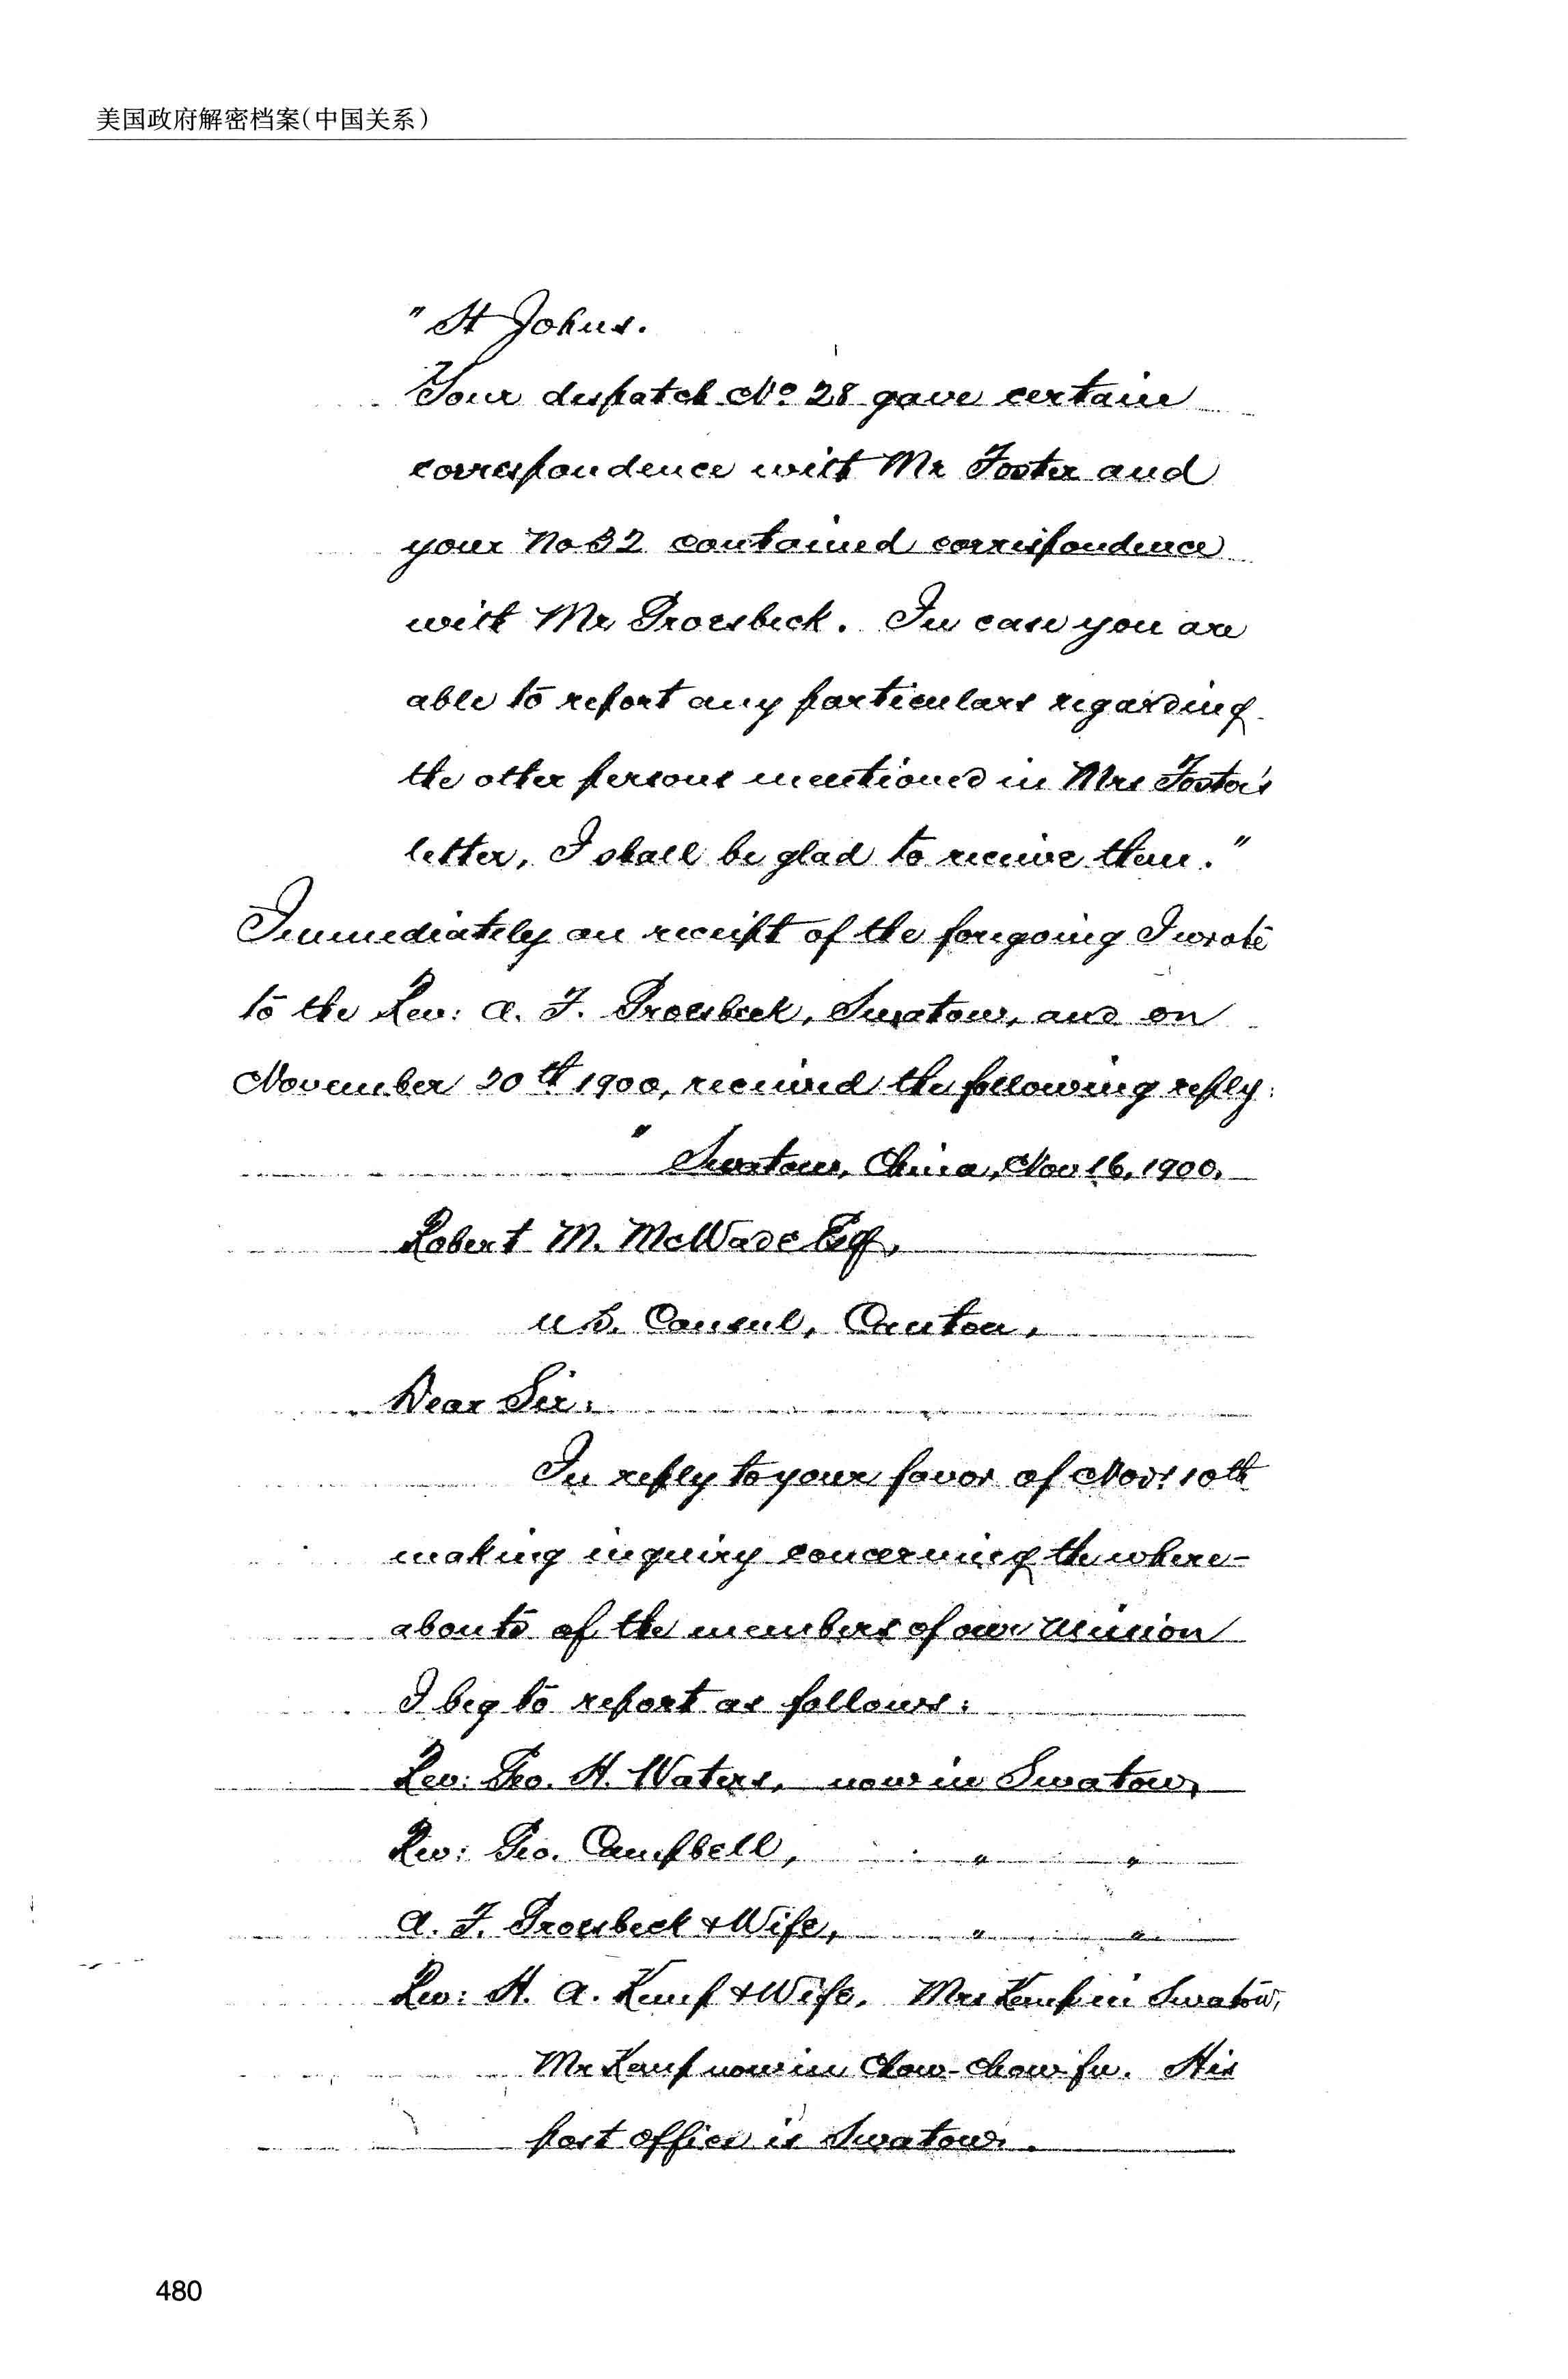 美国政府解密档案(中国关系)
"St Johns.
Your dispatch No 28 gave certain
correspondence with Mr Foster and
your No 32 contained correspondence
with Mr Groesbeck. In case you are
able to report any particulars regarding
the other persons mentioned in Mrs Foster's
letter, I shall be glad to receive them."
Immediately on receipt of the foregoing I wrote
to the Rev: A. F. Groesbeck, Swatow, and on
November 20th 1900, received the following reply:
"Swatow, China, Nov 16, 1900,
Robert M. McWade Esq,
U.S. Consul, Canton,
Dear Sir:
In reply to your favor of Nov: 10th
making inquiry concerning the where-
abouts of the members of our Mission
I beg to report as follows:
Rev: Geo. H. Waters, now in Swatow,
Rev: Geo. Campbell, " "
A. F. Groesbeck & Wife, " "
Rev: H. A. Kemp & Wife, Mrs Kemp in Swatow,
Mr Kemp now in Chow-Chow-fu. His
post office is Swatow.
480